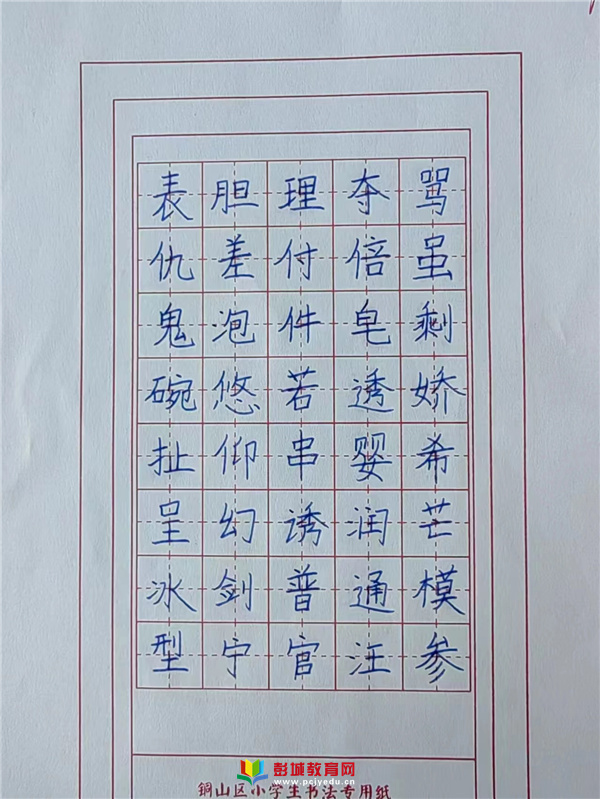 表胆理夺骂
仇差付倍虽
鬼泡件皂剩
碗悠若透娇
扯仰串婴希
呈幻诱润芒
冰剑普通模
型宁官汪参
铜山区小学生书法专用纸
彭城教育网
www.pcjyedu.cn